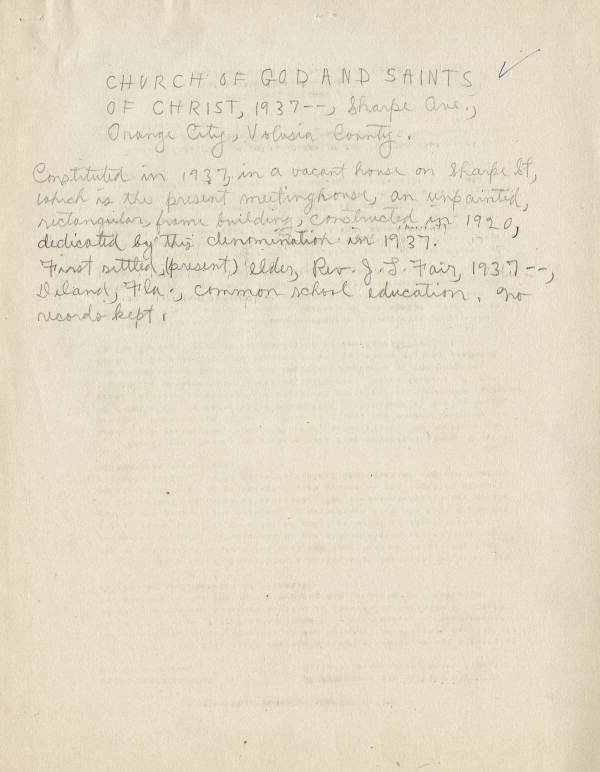 CHURCH OF GOD AND SAINTS
OF CHRIST, 1937--, Sharpe Ave.,
Orange City, Volusia County.
Constituted in 1937, in a vacant house on Sharpe St,
which is the present meetinghouse, an unpainted,
rectangular, frame building, constructed in 1920,
dedicated by this denomination in 1937.
First settled, (present) elder, Rev. J. L. Fair, 1937--,
Deland, Fla., common school education. No
records kept.